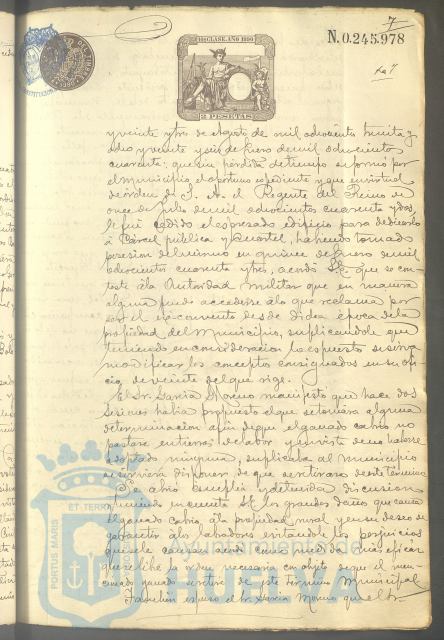 7
11ª CLASE. AÑO 1890
N. 0.245.978
2 PESETAS
y veinte y tres de Agosto de mil ochocientos treinta y
ocho y veinte y seis de Enero de mil ochocientos
cuarenta; que sin pérdida de tiempo se formó por
el Municipio el oportuno espediente y que en virtud
de órden de S. A. el Regente del Reino de
once de Julio de mil ochocientos cuarenta y dos,
le fué cedido el espresado edificio para dedicarlo
á Cárcel pública y Cuartel, habiendo tomado
posesion del mismo en quince de Enero de mil
ochocientos cuarenta y tres, acordó S.E. que se con-
teste á la Autoridad militar que en manera
alguna puede accederse á lo que reclama por
ser el ex-convento desde dicha época de la
propiedad del Municipio, suplicandole que
teniendo en consideracion lo espuesto se sirva
modificar los conceptos consignados en su ofi-
cio de veinte del que rige.
El Sr. Garcia Moreno manifestó que hace dos
sesiones habia propuesto el que se tomara alguna
determinacion afin de que el ganado cabrio no
pastase en tierras de labor y en vista de no haberse
adoptado ninguna, suplicaba al Municipio
se sirviera disponer de que se retirase de este término
Se abrió amplia y detenida discusion
y teniendo en cuenta S.E. los grandes daños que causa
el ganado cabrio á la propiedad rural y en su deseo de
garantir á los labradores evitando los perjuicios
que se le causan acordó como medida mas eficaz
que se libre la orden necesaria con objeto de que el men-
cionado ganado se retire de este Término Municipal
Tambien espuso el Sr. Garcia Moreno que el Sr.
PORTUS MARIS
ET TERRAE
Ayuntamiento de
HUELVA